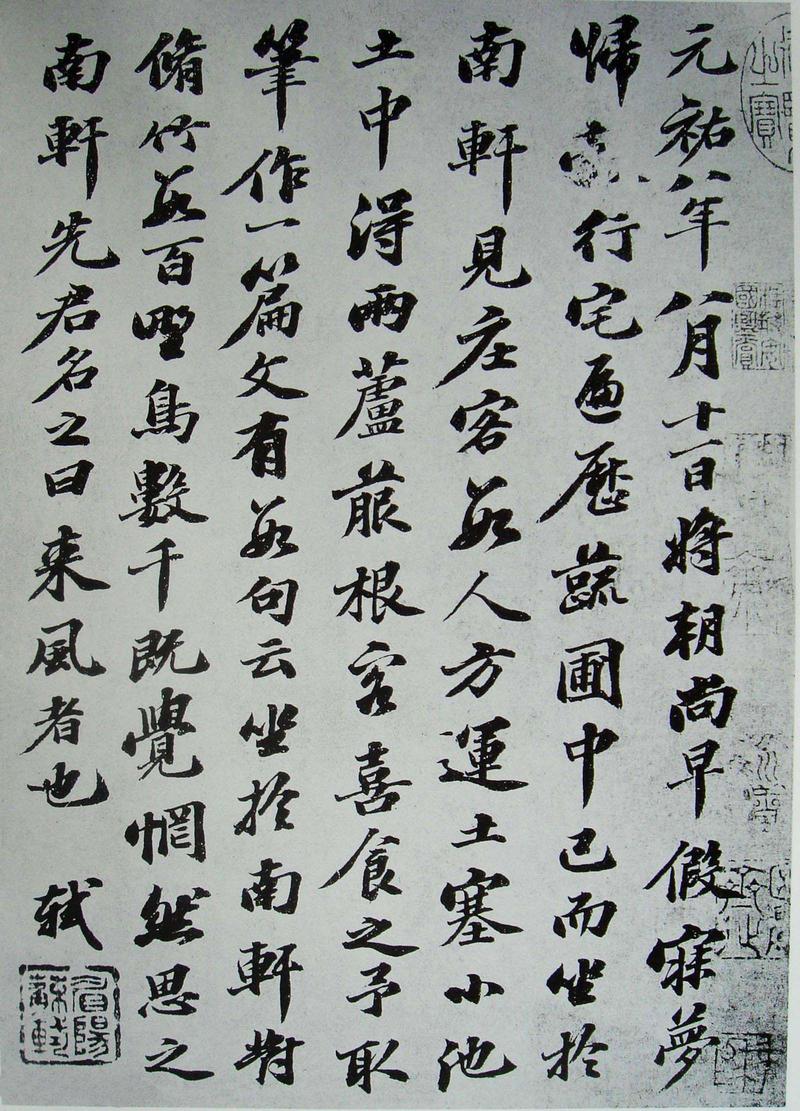 元祐八年八月十一日將朝尚早假寐夢
歸行宅遍歷蔬圃中已而坐於
南軒見庄客數人方運土塞小池
土中得兩蘆菔根客喜食之予取
筆作一篇文有數句云坐於南軒對
脩竹數百野鳥數千既覺惘然思之
南軒先君名之曰来風者也 軾